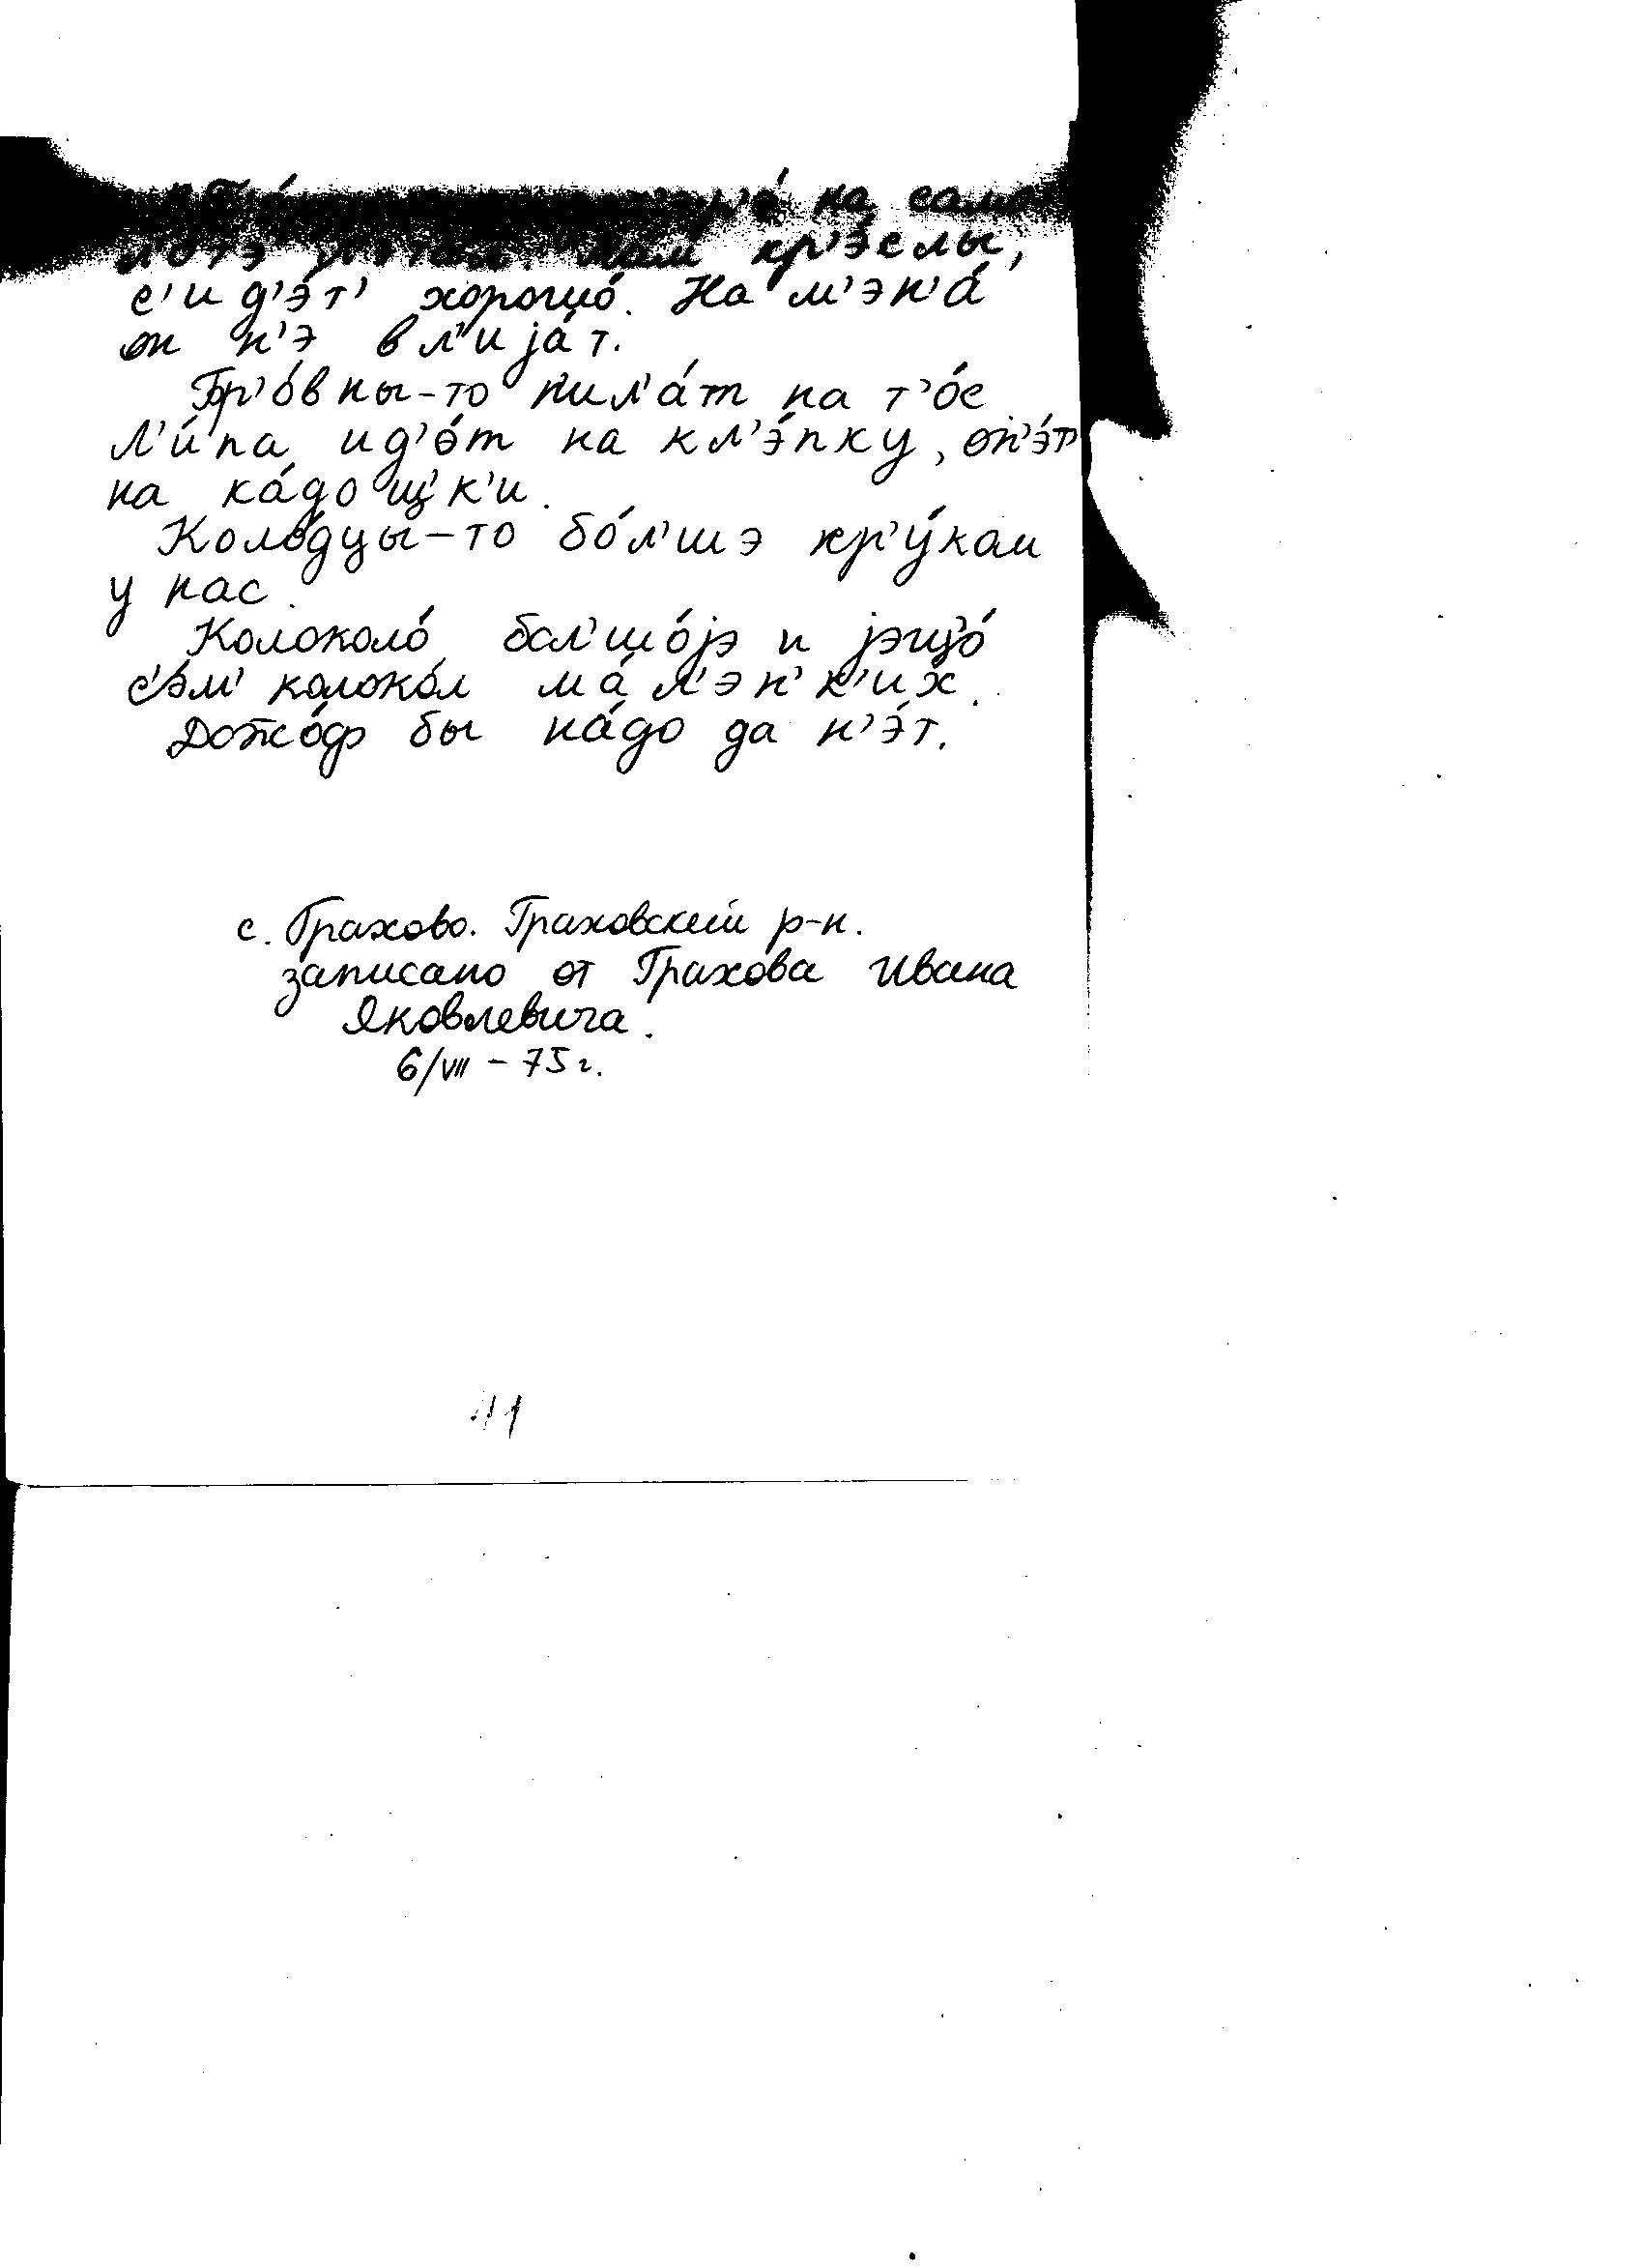 на само
л'о́тэ там кр'э́слы,
с'ид'э́т' хорошо́. На м'эн'а́
он н'э вл'ија́т.
Бр'о́вны-то пил'а́т на т'о́с
Л'и́па ид'о́т на кл'э́пку, оп'э́т
на ка́дощ'к'и.
Коло́дцы-то бо́л'шэ кр'у́кам
у нас.
Колоколо́ бол'шо́јэ и јэщ'о́
с'э́м' колоко́л ма́л'эн'к'их.
Дожо́ф бы на́до да н'э́т.
с. Грахово. Граховский р-н.
записано от Грахова Ивана
Яковлевича.
6/VII – 75 г.
41